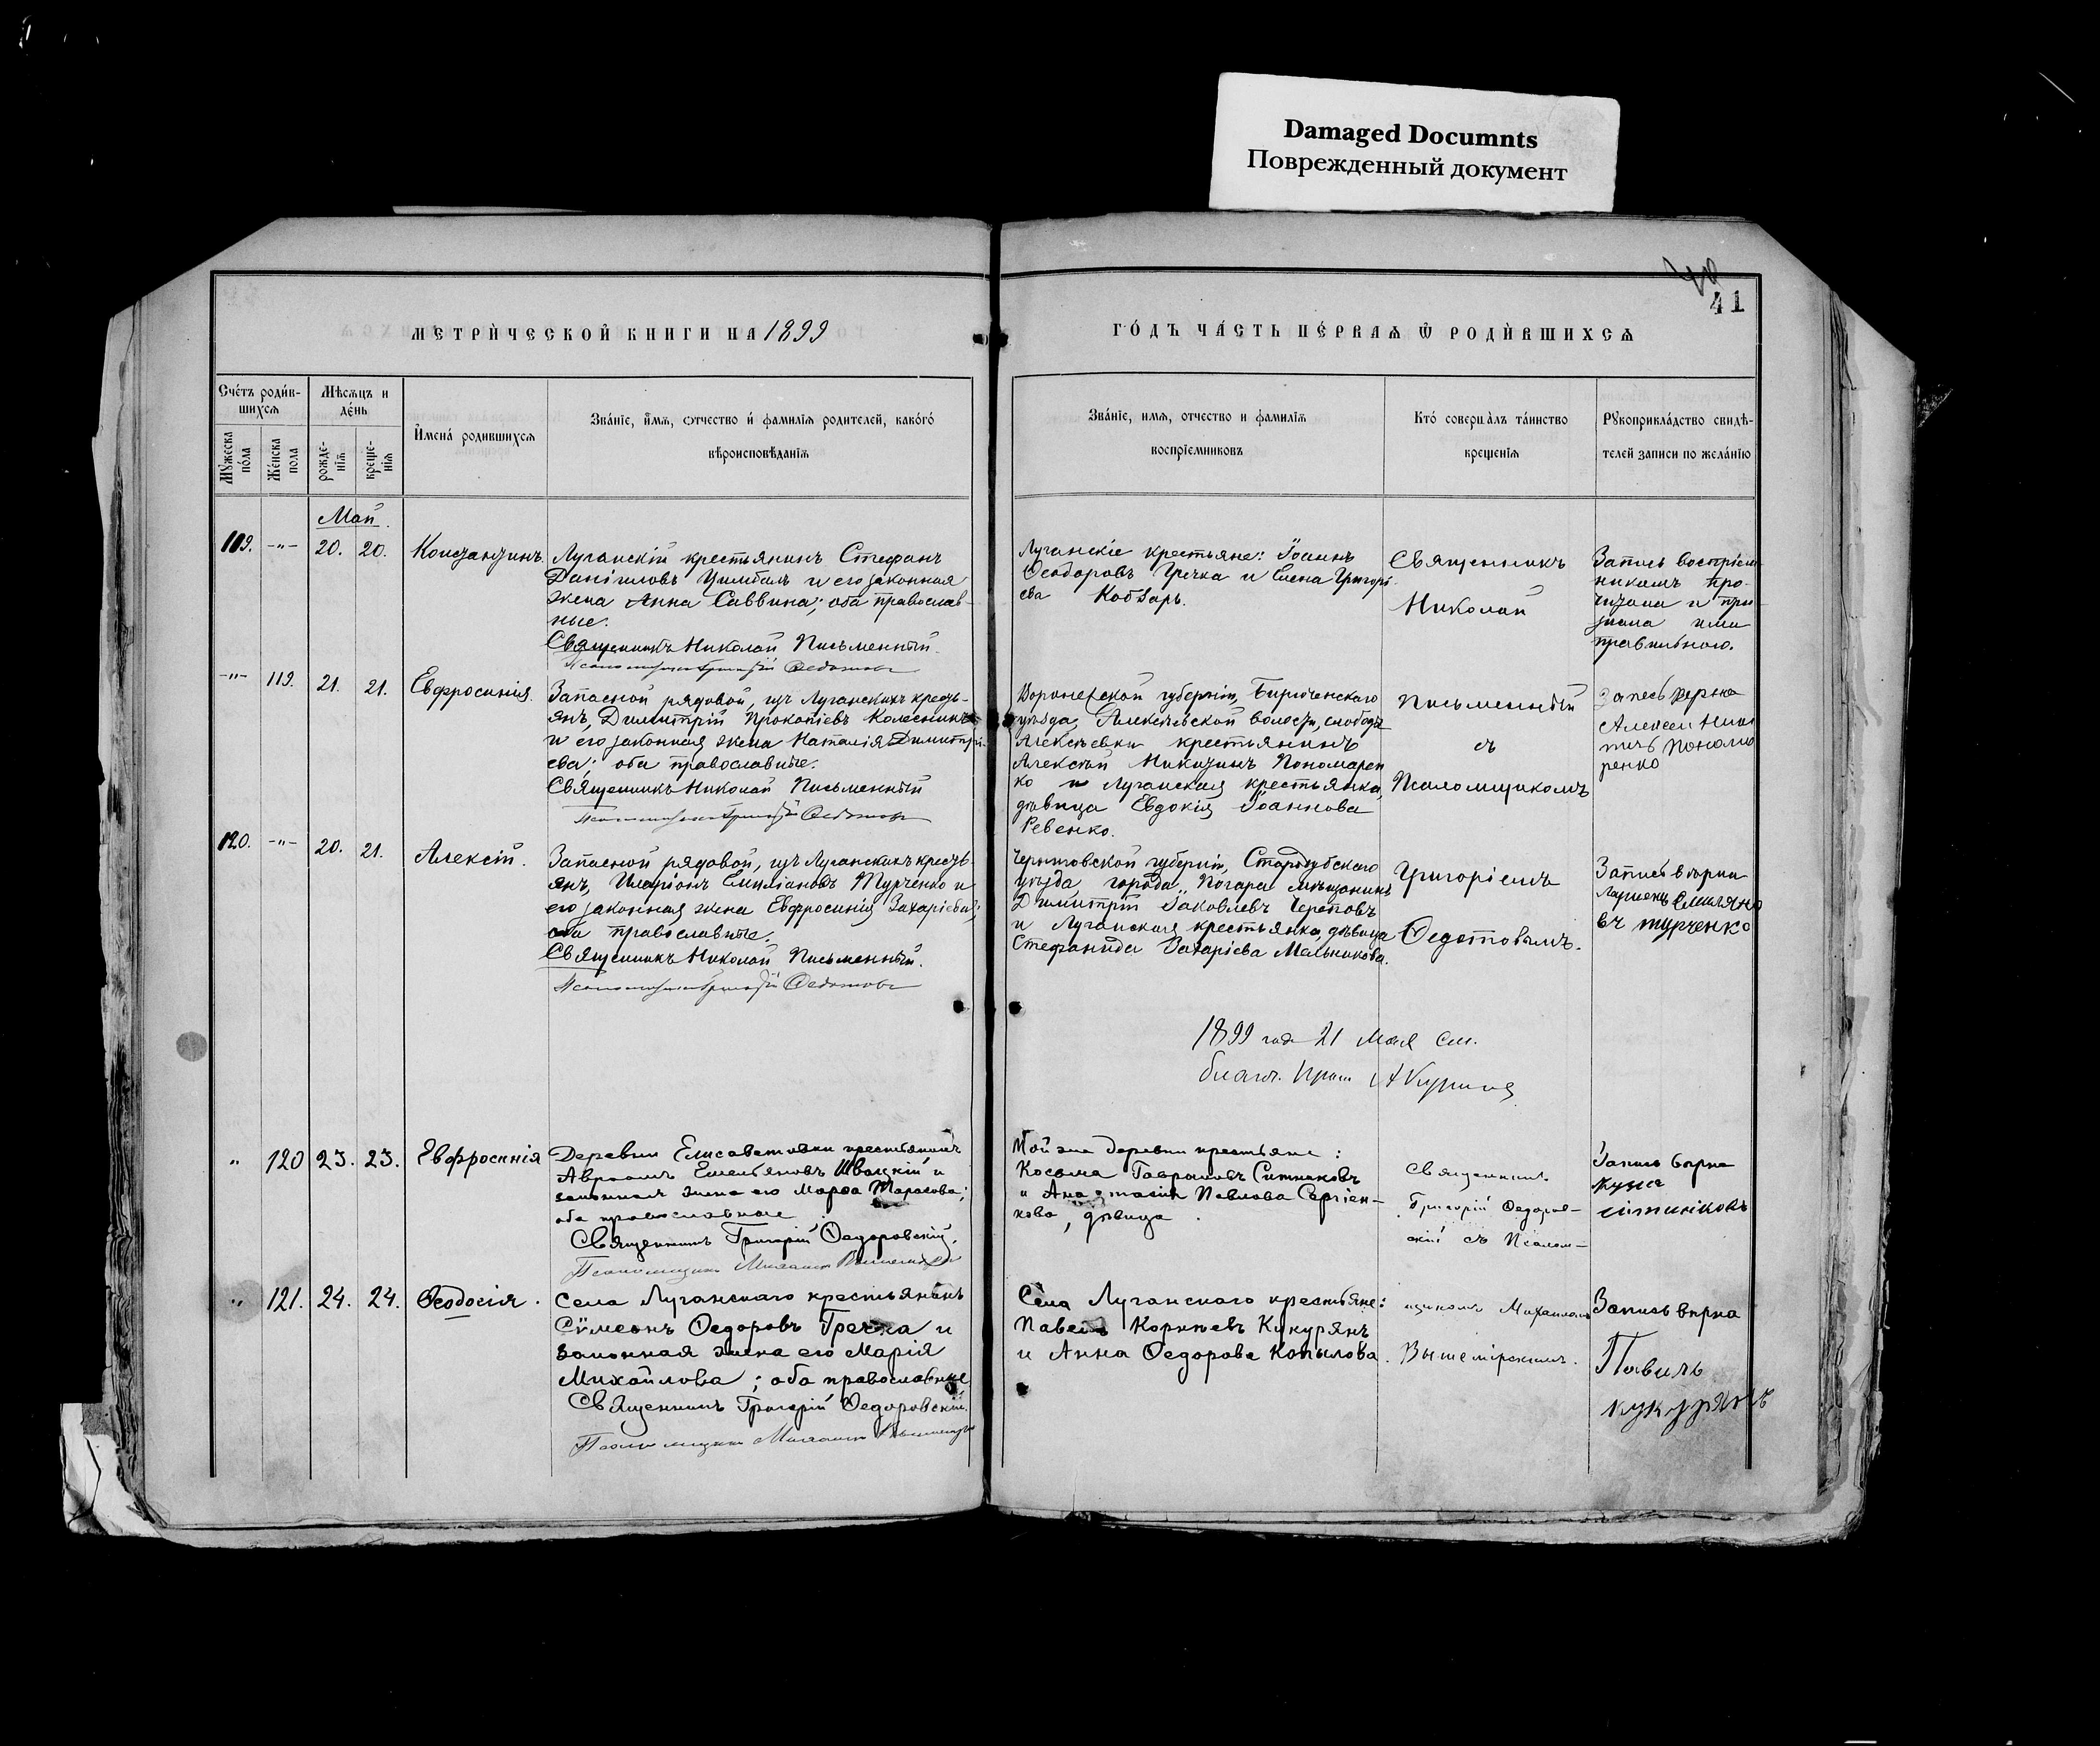 Damaged Documnts
Поврежденный документ
41
МЕТРИ́ЧЕСКОЙ КНИГИ НА 1899
ГО́ДЪ ЧА́СТЬ ПЕ́РВАѦ Ѿ РОДИ́ВШИХСѦ
Сче́тъ роди́в-
шихсѧ
Мꙋ́жеска по́ла
Же́нска пола
Мѣсѧцъ и
де́нь
рожде-
нїѧ
креще-
нїѧ
И҆мена́ родившихсѧ
Зва́нїе, и҆́мѧ, ѻтчество и҆ фамилїѧ родителей, како́гѡ
вѣроисповѣ́данїѧ
Зва́нїе, имѧ, отчество и фамилїѧ
воспрїемниковъ
Кто́ соверша́лъ та́инство
крещенїѧ
Рꙋкоприкла́дство свидѣ-
телей записи по жела́нїю
Май.
119. -"- 20. 20. Константинъ.
Луганскій крестьянинъ Стефанъ
Даніиловъ Цимбалъ и его законная
жена Анна Саввина; оба православ-
ные.
Священникъ Николай Письменный.
Псаломщикъ Григорій Федотовъ
Луганскіе крестьяне: Іоаннъ
Ѳеодоровъ Гречка и Елена Григорі-
ева Кобзарь.
Священникъ
Николай
Запись воспріем-
никамъ про-
читана и при-
знана ими
правильною.
-"- 119. 21. 21. Евфросинія.
Запасной рядовой, изъ Луганскихъ кресть-
янъ, Димитрій Прокопіевъ Колесникъ
и его законная жена Наталія Димитрі-
ева; оба православные.
Священникъ Николай Письменный
Псаломщикъ Григорій Федотовъ
Воронежской губерніи, Бирюченскаго
уѣзда, Алексѣевской волости, слободы
Алексѣевки крестьянинъ
Алексѣй Никитинъ Пономарен
ко и Луганская крестьянка,
дѣвица Евдокія Іоаннова
Ревенко.
Письменный
съ
Псаломщикомъ
Запесь верна
Алексеи Ники
тичъ Пономо
ренко
120. -"- 20. 21. Алексій.
Запасной рядовой, изъ Луганскихъ кресть-
янъ, Иларіонъ Емиліановъ Турченко и
его законная жена Евфросинія Захаріева;
оба православные.
Священникъ Николай Письменный.
Псаломщикъ Григорій Федотовъ
Черниговской губерніи, Стародубскаго
уѣзда, города Погара мѣщанинъ
Димитрій Іаковлевъ Череповъ
и Луганская крестьянка, дѣвица
Стефанида Захаріева Мельникова.
Григоріемъ
Ѳедотовымъ.
Запись вѣрна
Емиляно
въ турченко
1899 года 21 Мая См.
благ. Прот.
" 120 23. 23. Евфросинія
Деревни Елисаветовки крестьянинъ
Авраамъ Емельяновъ Швацкій и
законная жена его Марѳа Тарасова;
оба православные
Священникъ Григорій Ѳедоровскій.
Псаломщикъ Михаилъ
Той же деревни крестьяне:
Косьма Гавриловъ Ситниковъ
и Анастасія Павлова Сергіен-
кова, дѣвица.
Священникъ
Григорій Ѳедоров-
скій съ Псалом-
Запись вѣрна
Кузма
ситниковъ
" 121. 24. 24. Ѳеодосія.
Села Луганскаго крестьянинъ
Сѷмеонъ Ѳедоровъ Гречка и
законная жена его Марія
Михайлова; оба православные
Священникъ Григорій Ѳедоровскій.
Псаломщикъ Михаилъ
Села Луганскаго крестьяне:
Павелъ Корнѣевъ Кукурянъ
и Анна Ѳедорова Копылова.
щикомъ Михаиломъ
Вышемірскимъ.
Запись вѣрна
Павилъ
кукурянъ